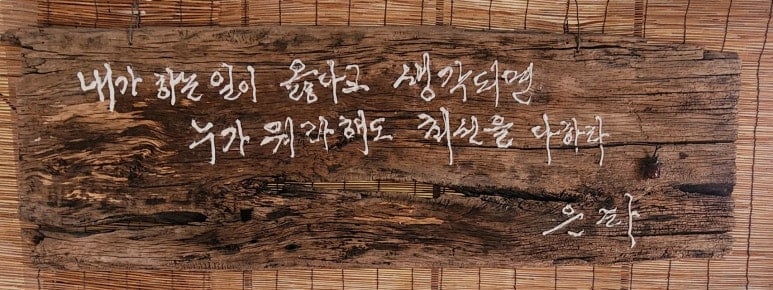 내가 하는 일이 옳다고 생각되면
누가 뭐라해도 최선을 다하라